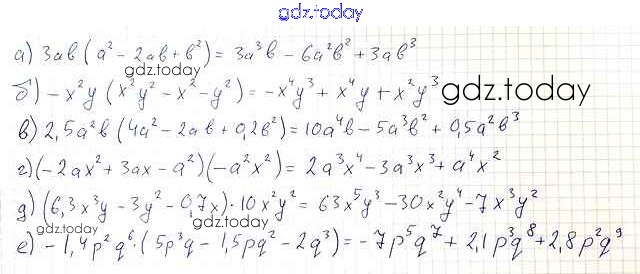 gdz.today
а) 3ab(a² - 2ab + b²) = 3a³b - 6a²b² + 3ab³
gdz.today
б) -x²y(x²y² - x² - y²) = -x⁴y³ + x⁴y + x²y³
gdz.today
в) 2,5a²b(4a² - 2ab + 0,2b²) = 10a⁴b - 5a³b² + 0,5a²b³
г) (-2ax² + 3ax - a²)(-a²x²) = 2a³x⁴ - 3a³x³ + a⁴x²
д) (6,3x³y - 3y² - 0,7x) · 10x²y² = 63x⁵y³ - 30x²y⁴ - 7x³y²
gdz.today
е) -1,4p²q⁶ · (5p³q - 1,5pq² - 2q³) = -7p⁵q⁷ + 2,1p³q⁸ + 2,8p²q⁹